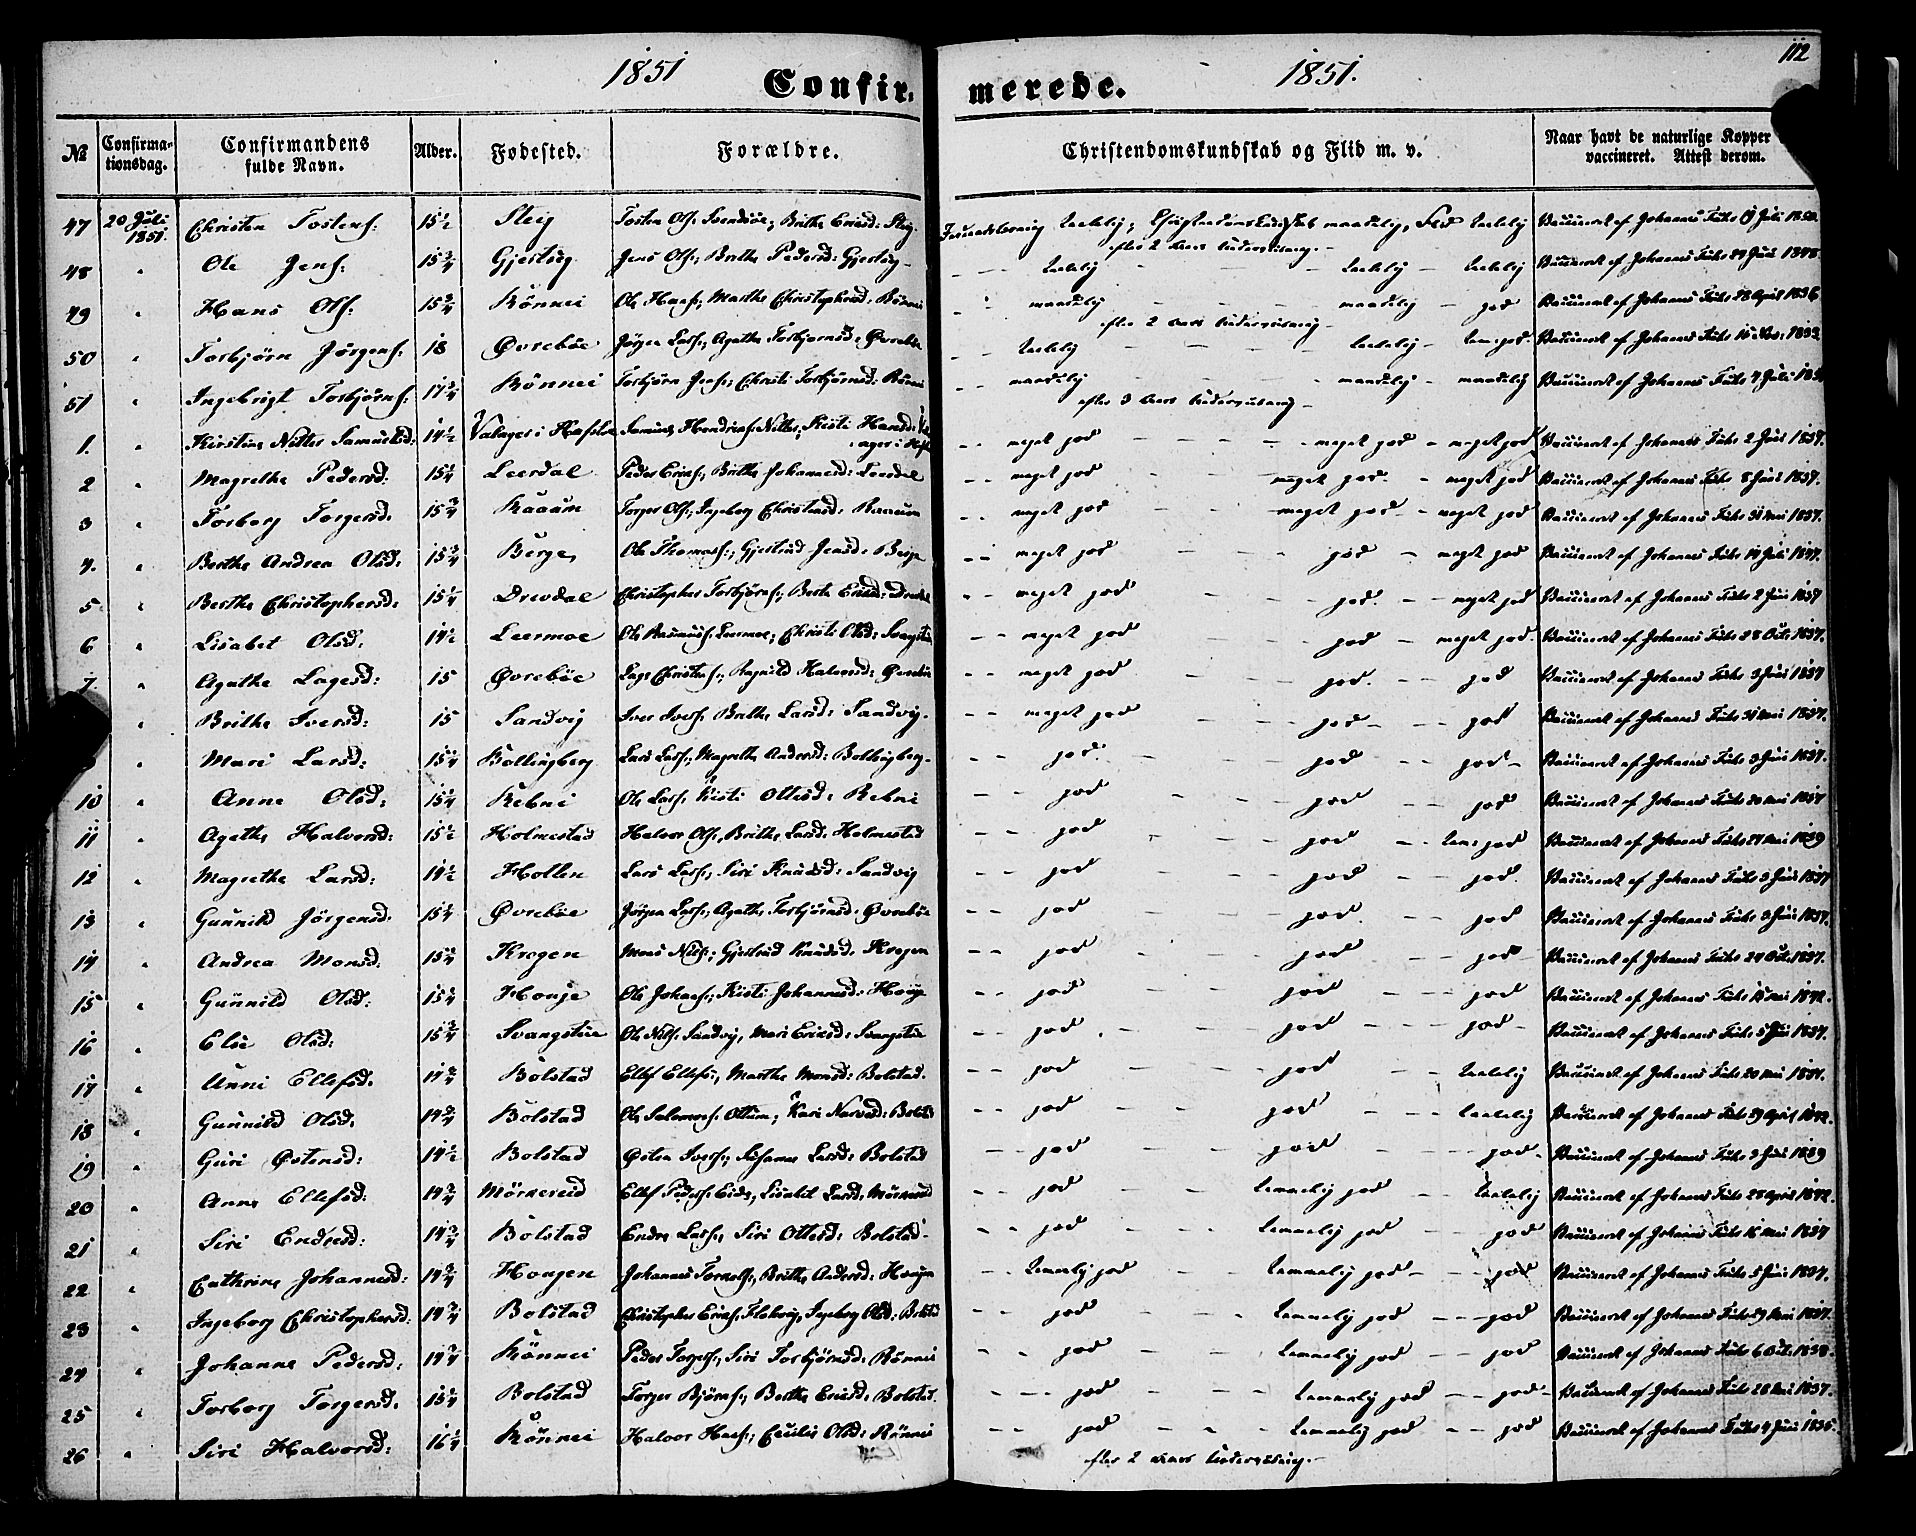 1851 Confir. merede. 1851. 112
№ Confirma-tionsdag. Confirmandens fulde Navn. Alder. Fødested. Forældre. Christendomskundskab og Flid m. v. Naar havt de naturlige Kopper vaccineret. Attest derom.
47 20 Juli 1851. Christen Tostens: 15½ Steig Tosten Ols: Svendsöe, Brithe Ericsd: Steig maadelig, Flid taalelig Vaccineret af Johannes Fuhr 19 Juli 1850.
efter 2 Aars Underviisning.
48 " Ole Jens: 15¾ Gjesteig Jens Ols: Brithe Pedersd: Gjesteig - - - taalelig - - - taalelig - taalelig Vaccineret af Johannes Fuhr 1848.
49 " Hans Ols: 15¾ Rönnei Ole Hans: Marthe Christophersd: Rönnei - - maadelig - - - maadelig - god Vaccineret af Johannes Fuhr 28 April 1836
efter 2 Aars Underviisning -
50 " Torbjörn Jörgens: 18 Øvreböe Jörgen Lars: Agathe Torbjörnsd: Øvreböe - - taalelig - - - taalelig - Vaccineret af Johannes Fuhr 1833.
51 " Ingebrigt Torbjörns: 17¾ Rönnei Torbjörn Jens: Christi Torbjörnsd: Rönnei - - maadelig - - maadelig - maadelig Vaccineret af Johannes Fuhr 4 Juli
efter 3 Aars Underviisning -
1. " Kirstine Nitter Samuelsd: 14½ i Hafslo Hendrics: Nitter, Kristi Hansd: - - meget god - - - meget god - meget god Vaccineret af Johannes Fuhr 2 Juni 1837.
2 " Magrethe Pedersd: 15¼ Leerdal Peder Erics: Brithe Johannesd: Leerdal - - meget god - - meget god. - meget god Vaccineret af Johannes Fuhr 8 Juni 1837.
3 " Torborg Torgersd: 15¾ Raaum Torger Ols: Ingeborg Christensd: Raaum - - meget god - - meget god - meget god Vaccineret af Johannes Fuhr 31 Mai 1837.
4. " Berthe Andrea Olsd: 15¾ Berge, Ole Thomas: Gjertrud Jensd: Berge - - meget god - - - god - meget god Vaccineret af Johannes Fuhr 14 Juli 1847.
5 " Berthe Christophersd: 15¼ Drevdal Christopher Torbjörns: Berte Ericsd: Drevdal - - meget god - - - god. - - meget god Vaccineret af Johannes Fuhr 2 Juni 1837
6 " Lisabet Olsd: 14½ Leermoe Ole Rasmus: Leermoe, Christi Olsd: - - meget god - - - god - meget god. Vaccineret af Johannes Fuhr 28 Octr. 1837.
7. " Agathe Lagesd: 15 Øvreböe Lage Christens: Ragnild Halvorsd: Øvreböe - - meget god - - - god. - - god Vaccineret af Johannes Fuhr 3 Juni 1837
" Brithe Iversd: 15 Sandvig Iver Ivers: Brithe Larsd: Sandvig. - - meget god - - god - - - god Vaccineret af Johannes Fuhr 31 Mai 1837.
" Mari Larsd: 15¼ Bollingberg Lars Lars: Magrethe Andersd: Bollingberg. - - god. - - - god - - god - Vaccineret af Johannes Fuhr 3 Juni 1837.
10 " Anne Olsd: 15¼ Rebni Ole Lars: Kristi Ottesd: Rebni - - god - - - god - - god Vaccineret af Johannes Fuhr 20 Mai 1837
11 " Agathe Halvorsd: 15½ Holmestad Halvor Ols: Brithe Larsd: Holmestad - - god - - - god - - god Vaccineret af Johannes Fuhr 27 Mai 1839
12 " Magrethe Larsd: 14½ Hollen Lars Lars: Siri Knudsd: Sandvig - - god - - - god - - god. Vaccineret af Johannes Fuhr 3 Juni 1837
13 " Gunnild Jörgensd: 15¼ Øvreböe Jörgen Lars: Agathe Torbjörnsd: Øvreböe - - god - - - god. - - god Vaccineret af Johannes Fuhr 3 Juni 1837.
14 " Andrea Monsd: 15¼ Krogen Mons Nils: Gjertrud Knudsd: Krogen - - god - - - god - - god - Vaccineret af Johannes Fuhr 24 Oct. 1837.
15 " Gunnild Olsd: 15¼ Houge Ole Johans: Kristi Johannesd: Houge - - god - - - god - - god Vaccineret af Johannes Fuhr 18 Mai 1842.
16 " Elie Olsd: 15¾ Svangstue Ole Nils: Sandvig, Mari Ericsd: Svangstue - - god - - - god - - god - Vaccineret af Johannes Fuhr 5 Juni 1837.
17 " Unni Ellefsd. 14¾ Bolstad Ellef Ellefs: Marthe Monsd: Bolstad. - - god - - - god - - taalelig Vaccineret af Johannes Fuhr 20 Mai 1837.
18 " Gunnild Olsd. 14¾ Bolstad Ole Salomons: Ottum, Kari Bolstad - - god - - god - - - taalelig Vaccineret af Johannes Fuhr 29 April 1842.
19 " Guri Østensd: 14½ Bolstad Østen Ivers: Susanne Larsd: Bolstad - - god - - god - - - god - Vaccineret af Johannes Fuhr 3 Juni 1839
20 " Anne Ellefsd: 14¾ Mörkereid Ellef Peders: Eide, Lisabet Larsd: Mörkereid - - god - - temmelig god - - taalelig Vaccineret af Johannes Fuhr 28 April 1842.
21 " Siri Endresd: 14¾ Bolstad Endre Lars: Siri Ottesd: Bolstad - - - god - - temmelig god - - god Vaccineret af Johannes Fuhr 16 Mai 1837
22 " Cathrine Johannesd: 14¾ Hougen Johannes Brithe Andersd: Hougen - - temmelig god - - temmelig god - - - god Vaccineret af Johannes Fuhr 5 Juni 1837.
23 " Ingeborg Christophersd: 14¾ Bolstad Christopher Erics: Flahovig, Ingeborg Olsd: Bolstad - - god - - - temmelig god - - - god Vaccineret af Johannes Fuhr 29 Mai 1837.
24 " Johanne Pedersd: 14¾ Rönnei Peder Torgers: Siri Torbjörnsd: Rönnei - - god - - - temmelig god - - god Vaccineret af Johannes Fuhr 6 Oct. 1838.
25 " Torborg Torgersd: 15¼ Bolstad Torger Björns: Berthe Ericsd: Bolstad. - - - god - - - temmelig god - - god - Vaccineret af Johannes Fuhr 28 Mai 1837.
26 " Siri Halvorsd: 16¼ Rönnei Halvor Hans: Cecilie Olsd: Rönnei - - god - - - temmelig god - - god Vaccineret af Johannes Fuhr 4 Juni 1835.
efter 2 Aars Underviisning. -